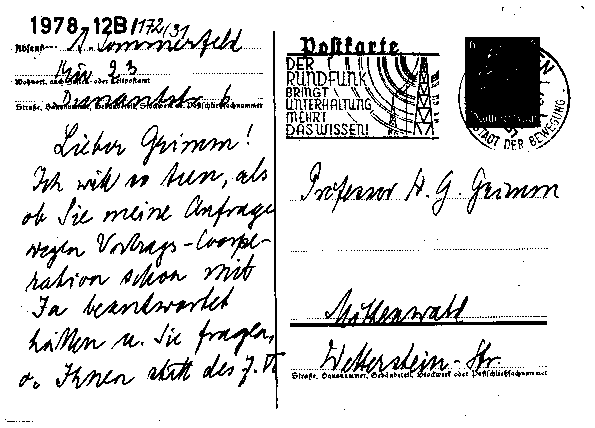 1978, 12B/172/31
Absender: A. Sommerfeld
Mü 23
Wohnort, auch Zustell- oder Leitpostamt
Dunantstr 6
Straße, Hausnummer, Gebäudeteil, Stockwerk od. Postschließfachnummer
Lieber Grimm!
Ich will so tun, als
ob Sie meine Anfrage
wegen Vortrags-Coope-
ration schon mit
Ja beantwortet
hätten u. Sie fragen,
ob Ihnen statt des 7. VI
Postkarte
DER
RUNDFUNK
BRINGT
UNTERHALTUNG
MEHRT
DAS WISSEN!
STADT DER BEWEGUNG
Professor H. G. Grimm
Mittenwald
Wetterstein-Str.
Straße, Hausnummer, Gebäudeteil, Stockwerk oder Postschließfachnummer